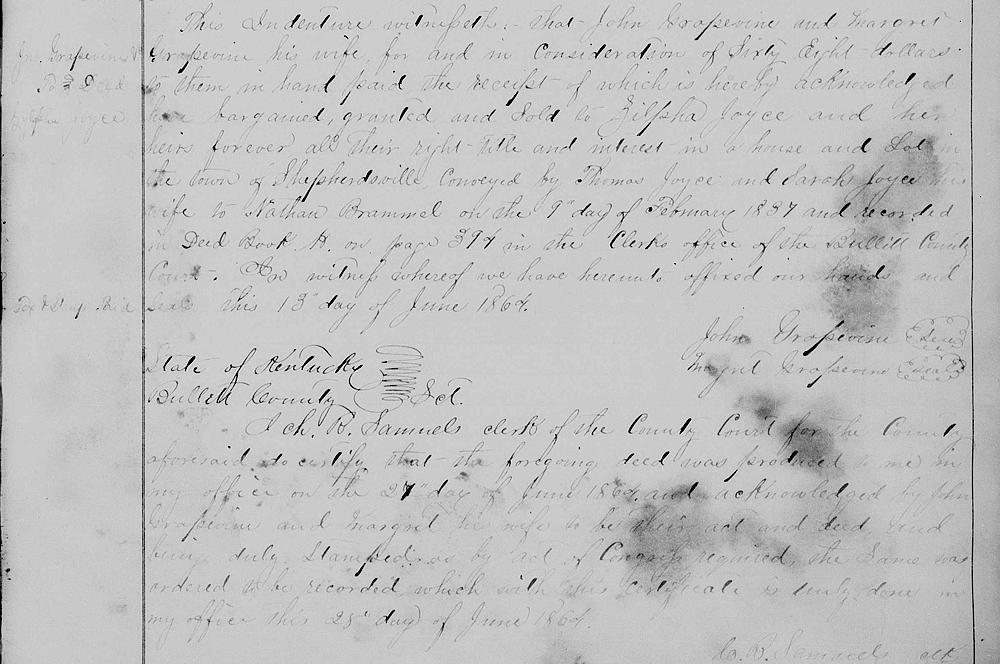 This Indenture witnesseth:- that John Grapevine and Margret
Jno. Grapevine &
Grapevine his wife, for and in Consideration of Sixty Eight dollars
To Deed
to them in hand paid the receipt of which is hereby acknowledged
Zilpha Joyce
have bargained, granted and Sold to Zilpha Joyce and her
heirs forever all their right title and interest in a house and Lot in
the town of Shepherdsville, Conveyed by Thomas Joyce and Sarah Joyce his
wife to Nathan Brammel on the 9" day of February 1837 and recorded
in Deed Book H. on page 394 in the Clerks office of the Bullitt County
Court. In witness whereof we have hereunto affixed our hands and
Tax & Stamp Paid
Seals this 13" day of June 1864.
John Grapevine Seal
Margret Grapevine Seal
State of Kentucky
Bullitt County Sct.
I ch. R. Samuels clerk of the County Court for the County
aforesaid, do certify that the foregoing deed was produced to me in
my office on the 27" day of June 1864. and acknowledged by John
Grapevine and Margret his wife to be their act and deed, and
being duly Stamped as by act of Congress required, the Same was
ordered to be recorded which with this certificate is truly done in
my office this 25" day of June 1864.
C. R. Samuels clk